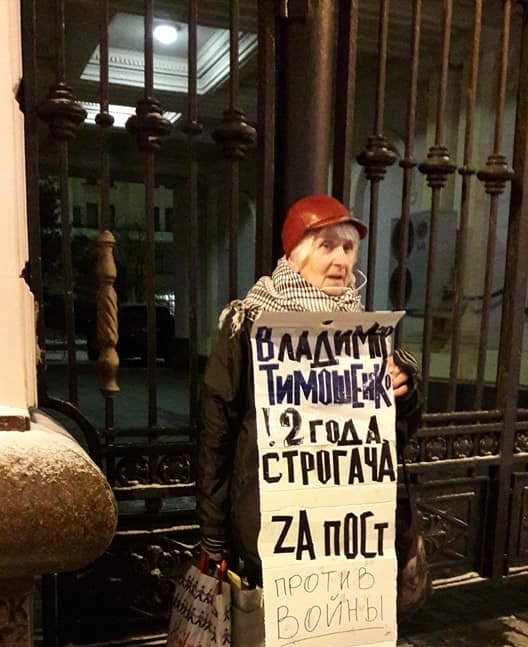 ВЛАДИМИР
ТИМОШЕНКО
! 2 ГОДА
СТРОГАЧА
ZA ПОСТ
ПРОТИВ
ВОЙНЫ